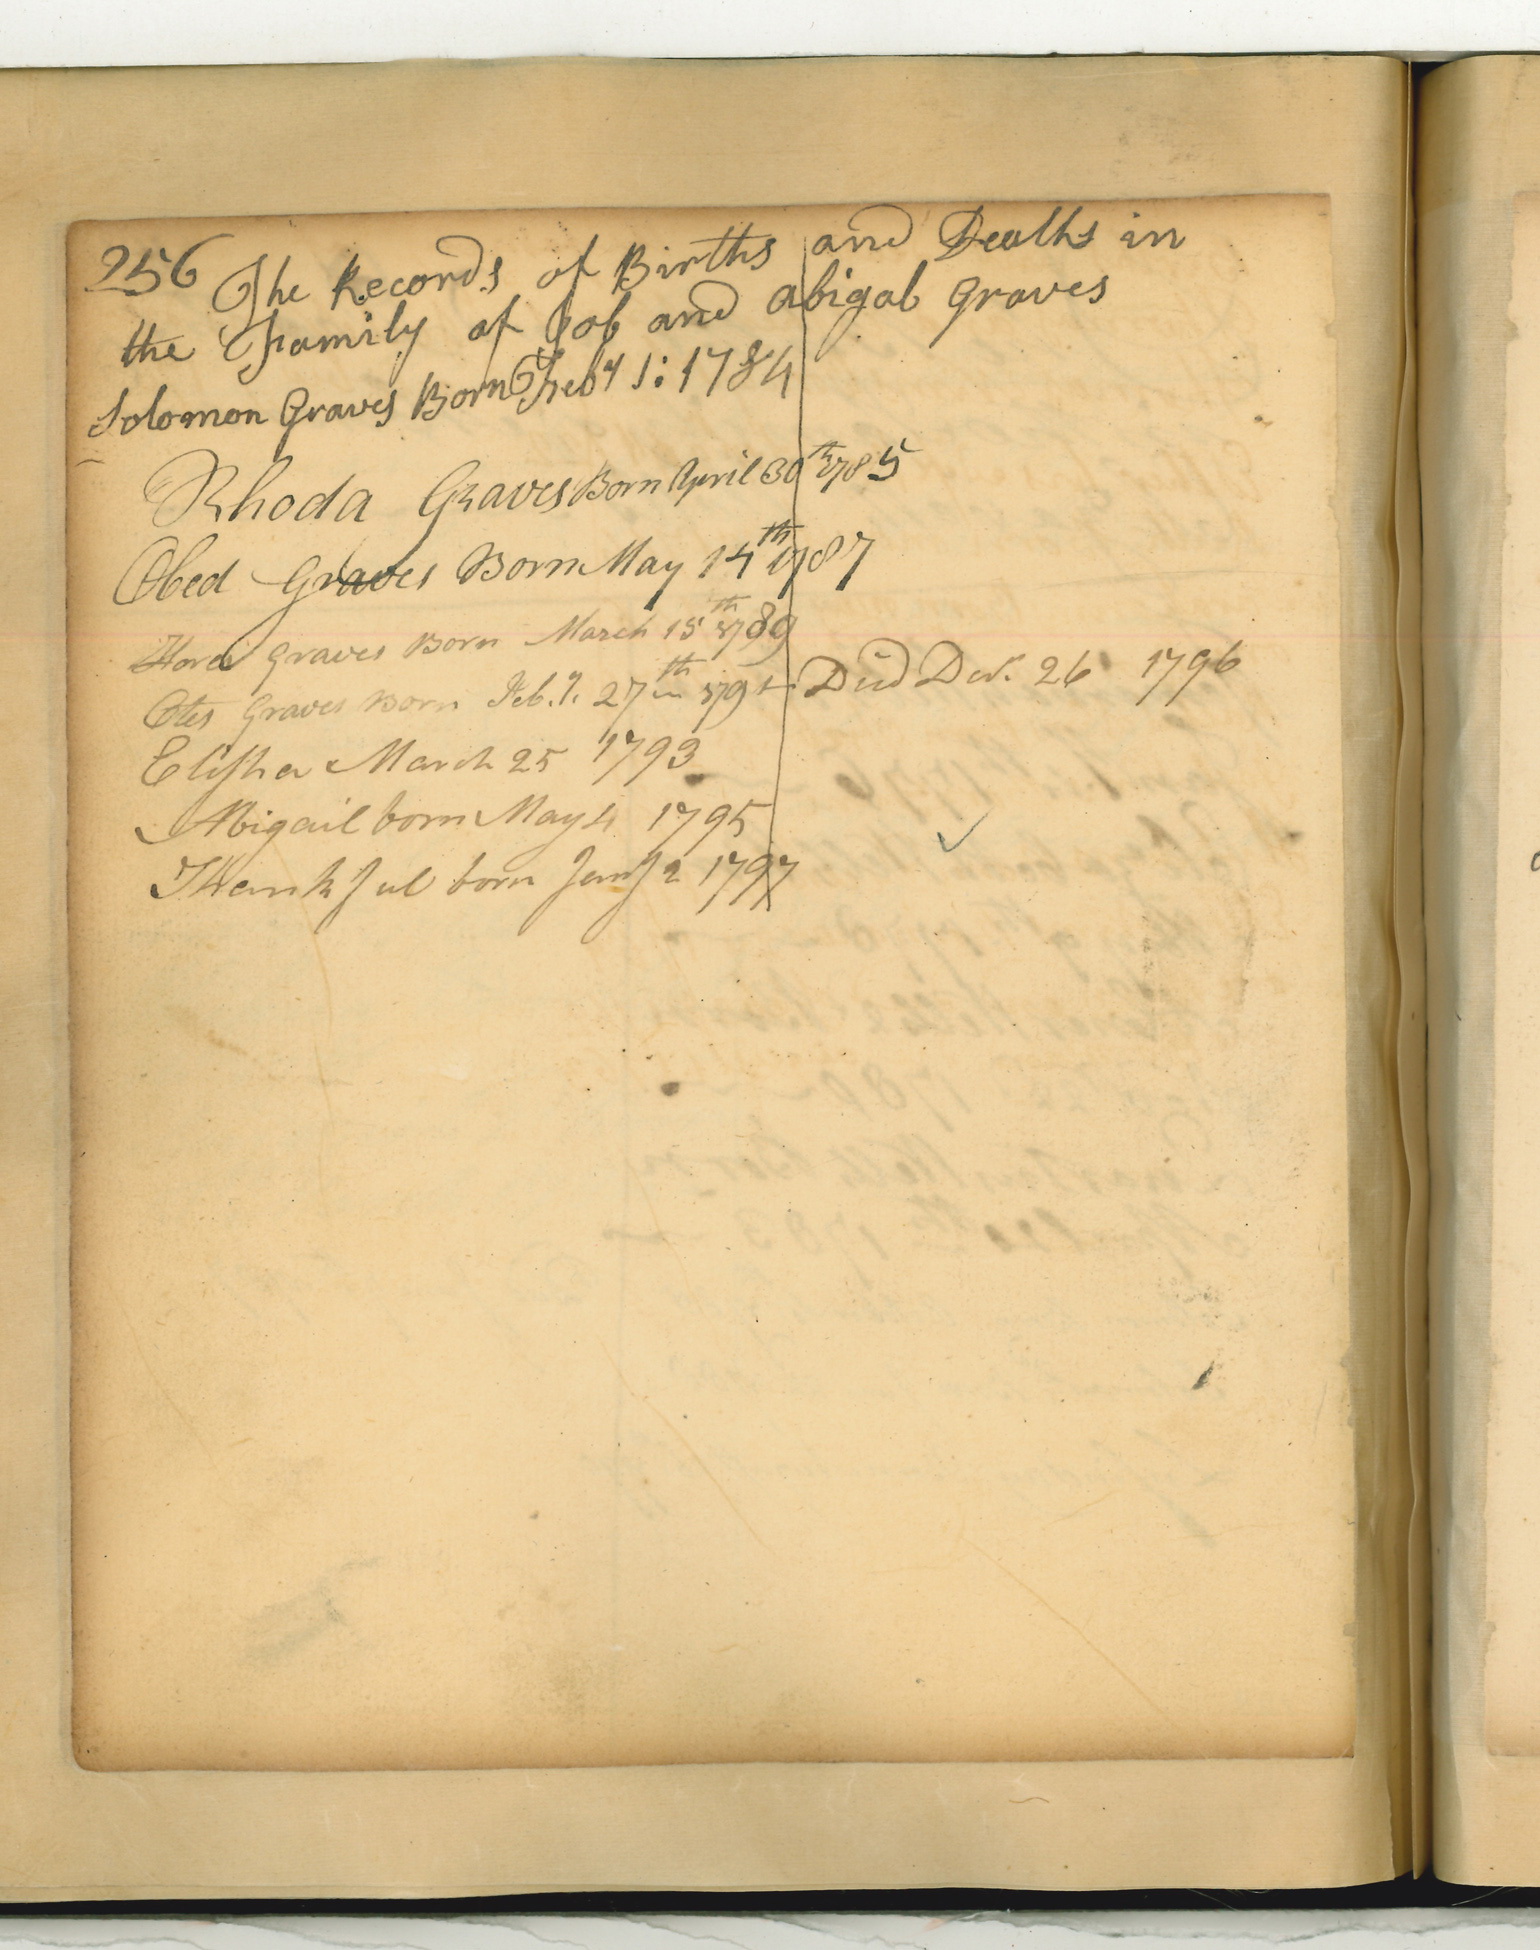 256 The Records of Births and Deaths in
the Family of Job and abigal Graves
Solomon Graves Born Feby 1: 1784
Rhoda Graves Born April 30th 1785
Obed Graves Born May 14th 1787
Graves Born March 15th 1789
Otis Graves Born Feb.y. 27th 1791 Died Dec. 26 1796
Elisha March 25 1793
Abigail born May 4 1795
Thankful born Jany 2 1797